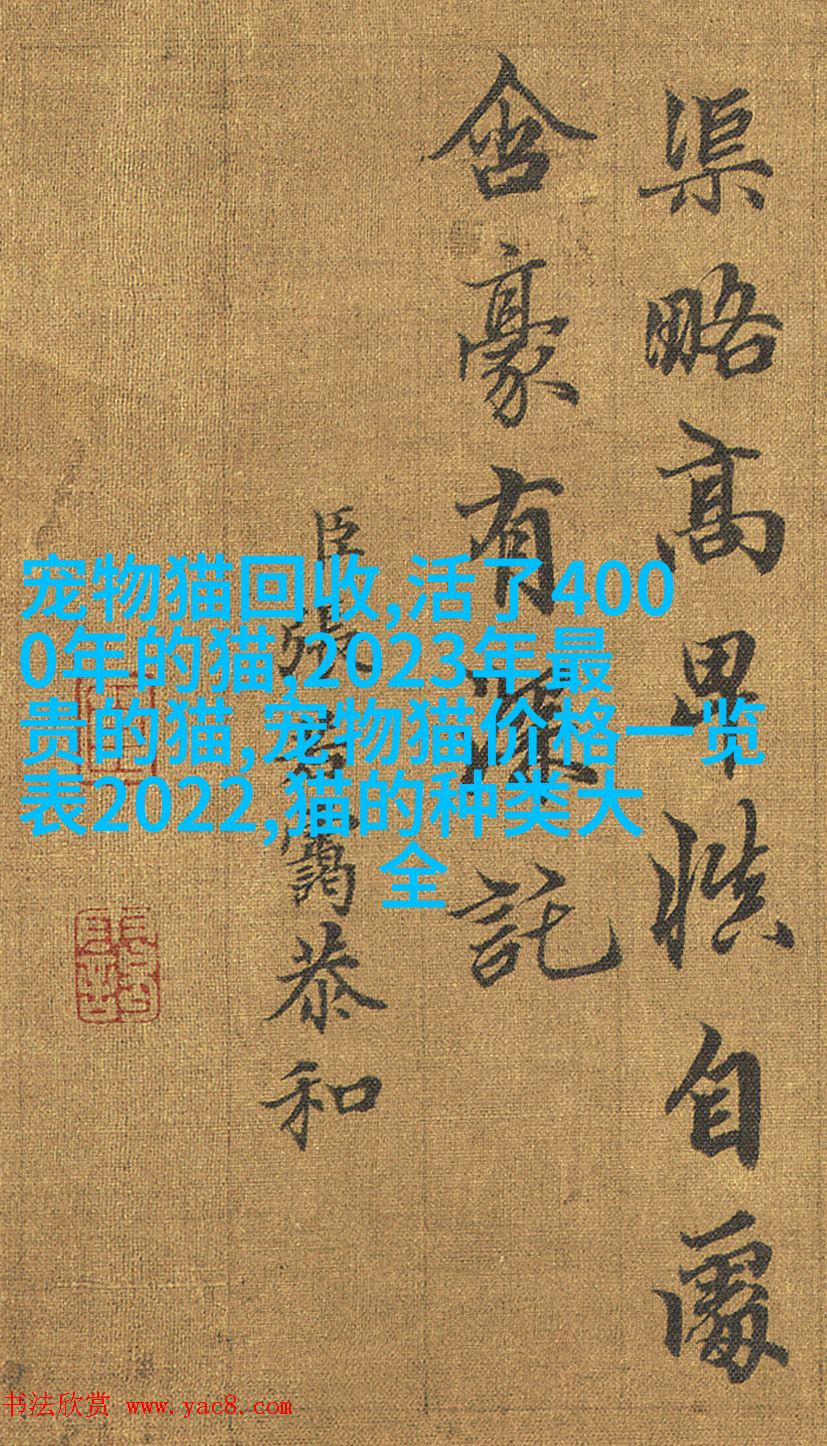 渠略高卑自處
含豪有深託
臣張若靄恭和
宠物猫回收,活了400
0年的猫,2023年最
贵的猫,宠物猫价格一览
表2022,猫的种类大
全
书法欣赏 www.yac8.com